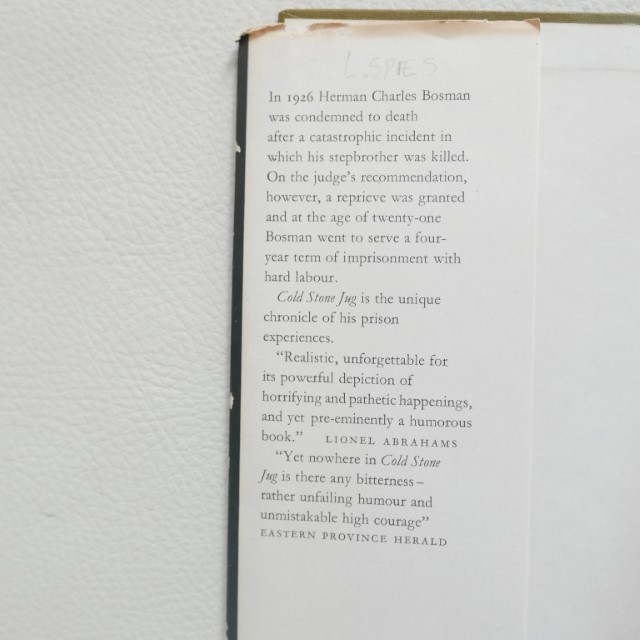 L. SPIES
In 1926 Herman Charles Bosman
was condemned to death
after a catastrophic incident in
which his stepbrother was killed.
On the judge's recommendation,
however, a reprieve was granted
and at the age of twenty-one
Bosman went to serve a four-
year term of imprisonment with
hard labour.
Cold Stone Jug is the unique
chronicle of his prison
experiences.
"Realistic, unforgettable for
its powerful depiction of
horrifying and pathetic happenings,
and yet pre-eminently a humorous
book." LIONEL ABRAHAMS
"Yet nowhere in Cold Stone
Jug is there any bitterness–
rather unfailing humour and
unmistakable high courage"
EASTERN PROVINCE HERALD